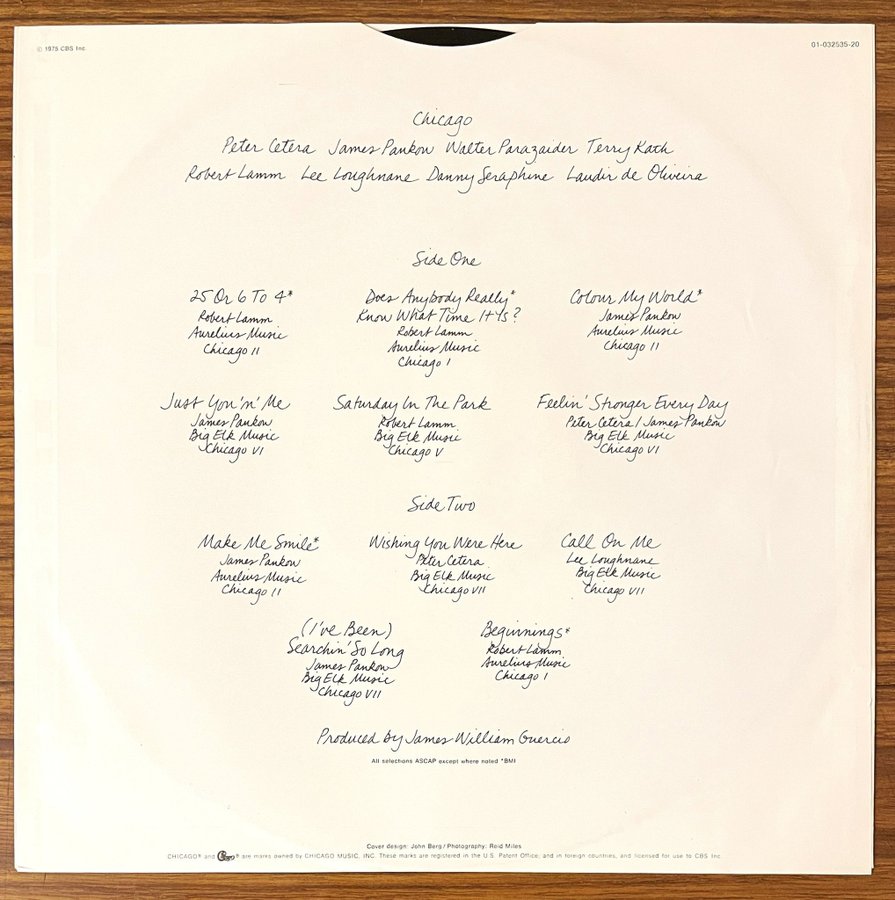 © 1975 CBS Inc
01-032535-20
Chicago
Peter Cetera James Pankow Walter Parazaider Terry Kath
Robert Lamm Lee Loughnane Danny Seraphine Laudir de Oliveira
Side One
25 Or 6 To 4*
Robert Lamm
Aurelius Music
Chicago II
Does Anybody Really*
Know What Time It Is?
Robert Lamm
Aurelius Music
Chicago I
Colour My World*
James Pankow
Aurelius Music
Chicago II
Just You 'n' Me
James Pankow
Big Elk Music
Chicago VI
Saturday In The Park
Robert Lamm
Big Elk Music
Chicago V
Feelin' Stronger Every Day
Peter Cetera / James Pankow
Big Elk Music
Chicago VI
Side Two
Make Me Smile*
James Pankow
Aurelius Music
Chicago II
Wishing You Were Here
Peter Cetera
Big Elk Music
Chicago VII
Call On Me
Lee Loughnane
Big Elk Music
Chicago VII
(I've Been)
Searchin' So Long
James Pankow
Big Elk Music
Chicago VII
Beginnings*
Robert Lamm
Aurelius Music
Chicago I
Produced By James William Guercio
All selections ASCAP except where noted *BMI
Cover design: John Berg / Photography: Reid Miles
CHICAGO® and Chicago® are marks owned by CHICAGO MUSIC, INC. These marks are registered in the U.S. Patent Office, and in foreign countries, and licensed for use to CBS Inc.